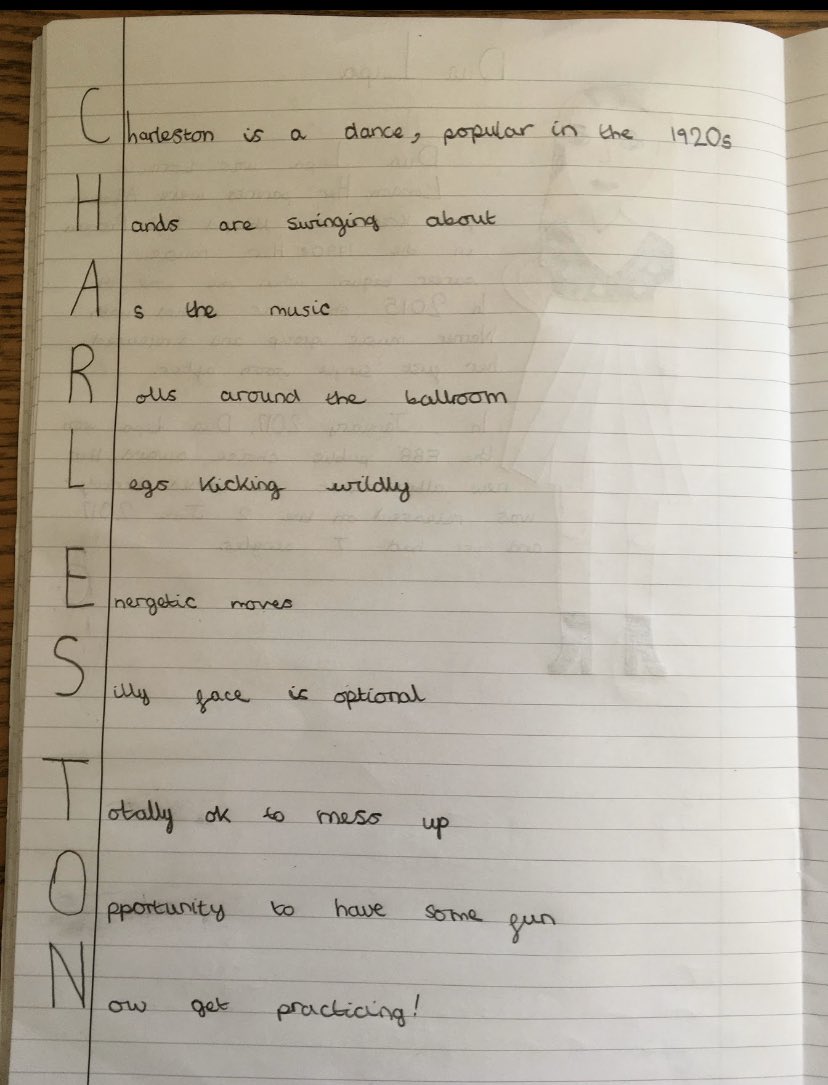 Charleston is a dance, popular in the 1920s
Hands are swinging about
As the music
Rolls around the ballroom
Legs kicking wildly
Energetic moves
Silly face is optional
Totally ok to mess up
Opportunity to have some fun
Now get practicing!